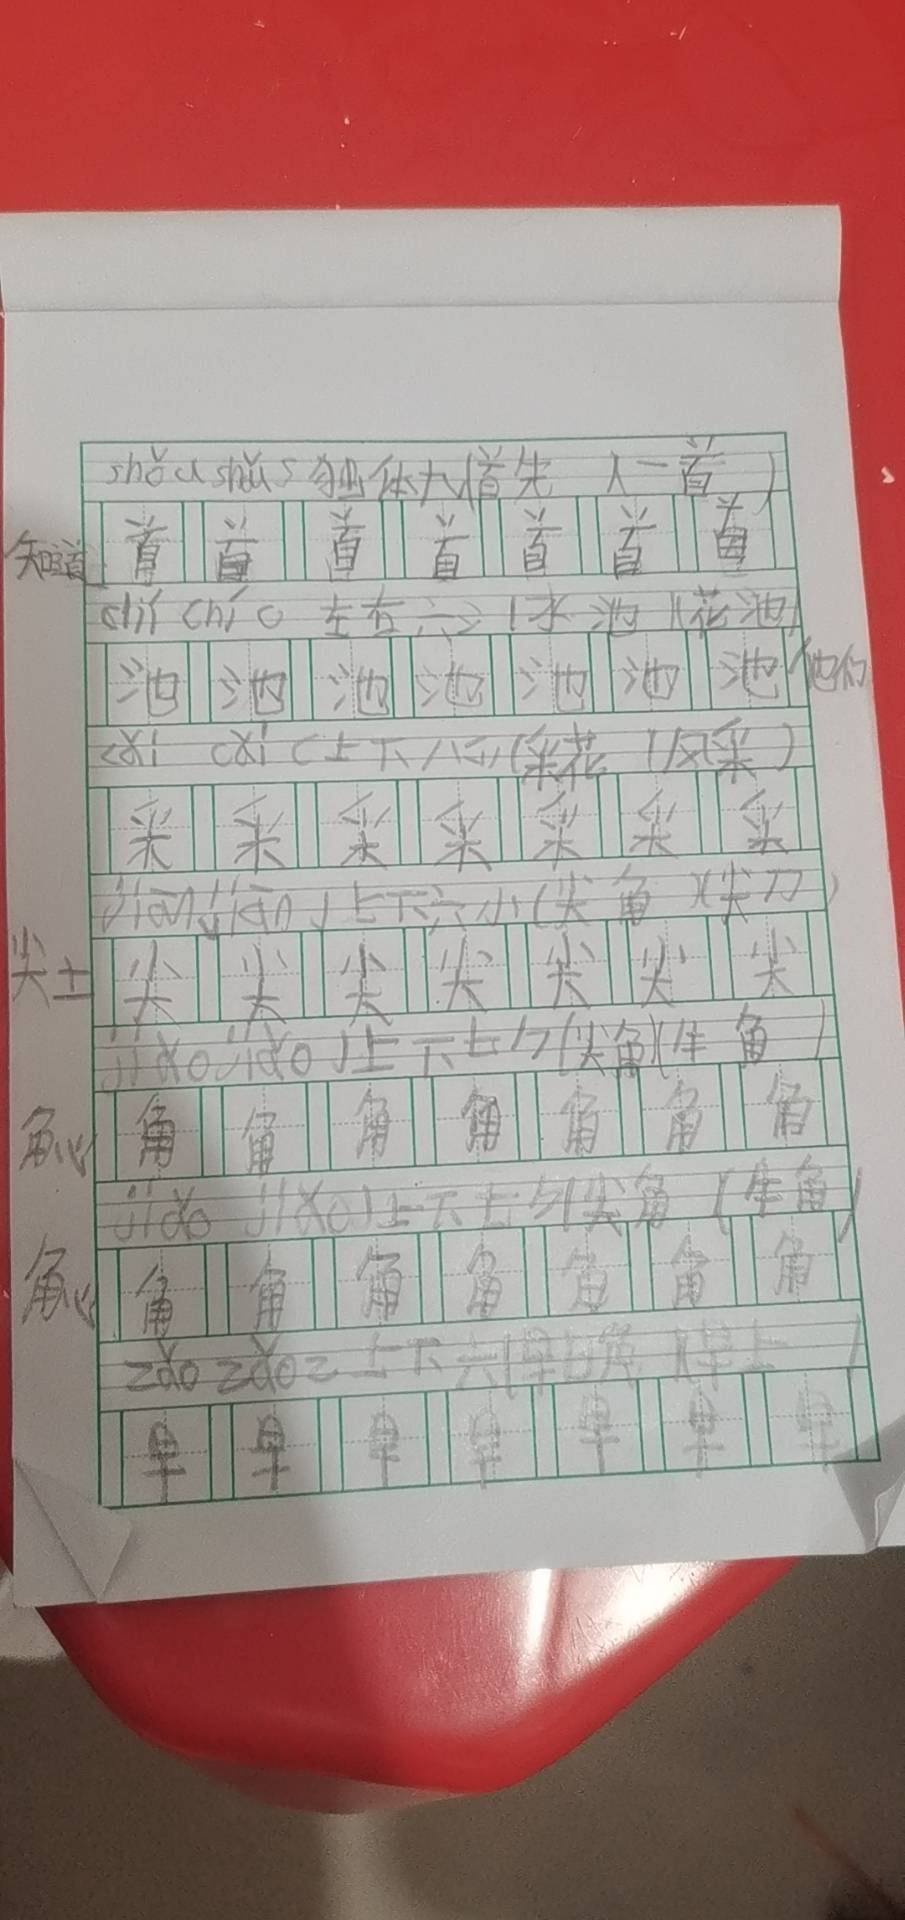 shǒu shǒu S 独体九(首先 )(一首 )
知道 首 首 首 首 首 首 首
chí chí c 左右六氵(水池)(花池)
池 池 池 池 池 池 池 他们
cǎi cǎi C 上下八(采花)(风采)
采 采 采 采 采 采 采
jiān jiān J 上下六小(尖角)(尖刀)
尖土 尖 尖 尖 尖 尖 尖 尖
jiǎo jiǎo J 上下七⺈(尖角)(牛角)
角 角 角 角 角 角 角
jiǎo jiǎo J 上下七⺈(尖角)(牛角)
角 角 角 角 角 角 角
zǎo zǎo z 上下六(早 )(早上 )
早 早 早 早 早 早 早